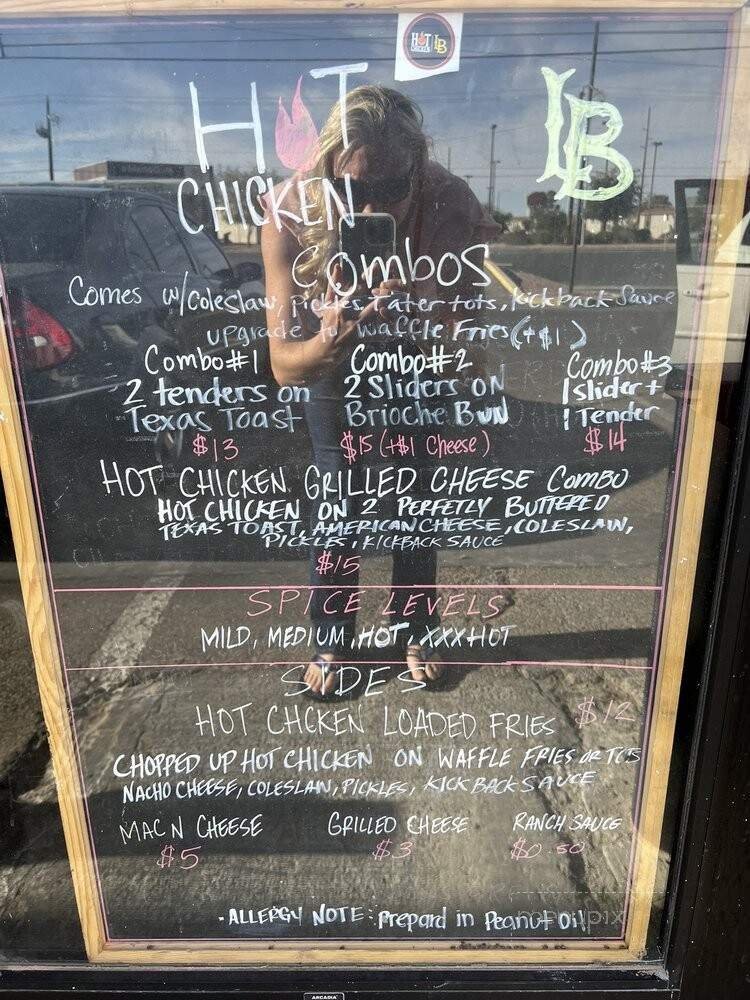 HOT LB
HOT LB
CHICKEN
COMBOS
Comes w/Coleslaw, Pickles, Tater tots, kickback Sauce
upgrade to waffle Fries (+$1)
Combo#1 Combo#2 Combo#3
2 tenders on 2 Sliders ON 1 slider +
Texas Toast Brioche Bun 1 Tender
$13 $15 (+$1 Cheese) $14
HOT CHICKEN GRILLED CHEESE COMBO
HOT CHICKEN ON 2 PERFETLY BUTTERED
TEXAS TOAST, AMERICAN CHEESE, COLESLAW,
PICKLES, KICKBACK SAUCE
$15
SPICE LEVELS
MILD, MEDIUM, HOT, XXX HOT
SIDES
HOT CHCKEN LOADED FRIES $12
CHOPPED UP HOT CHICKEN ON WAFFLE FRIES OR TOTS
NACHO CHEESE, COLESLAW, PICKLES, KICK BACK SAUCE
MAC N CHEESE GRILLED CHEESE RANCH SAUCE
$5 $3 $0.50
- ALLERGY NOTE: Prepard in Peanut Oil
menupix
ARCADIA